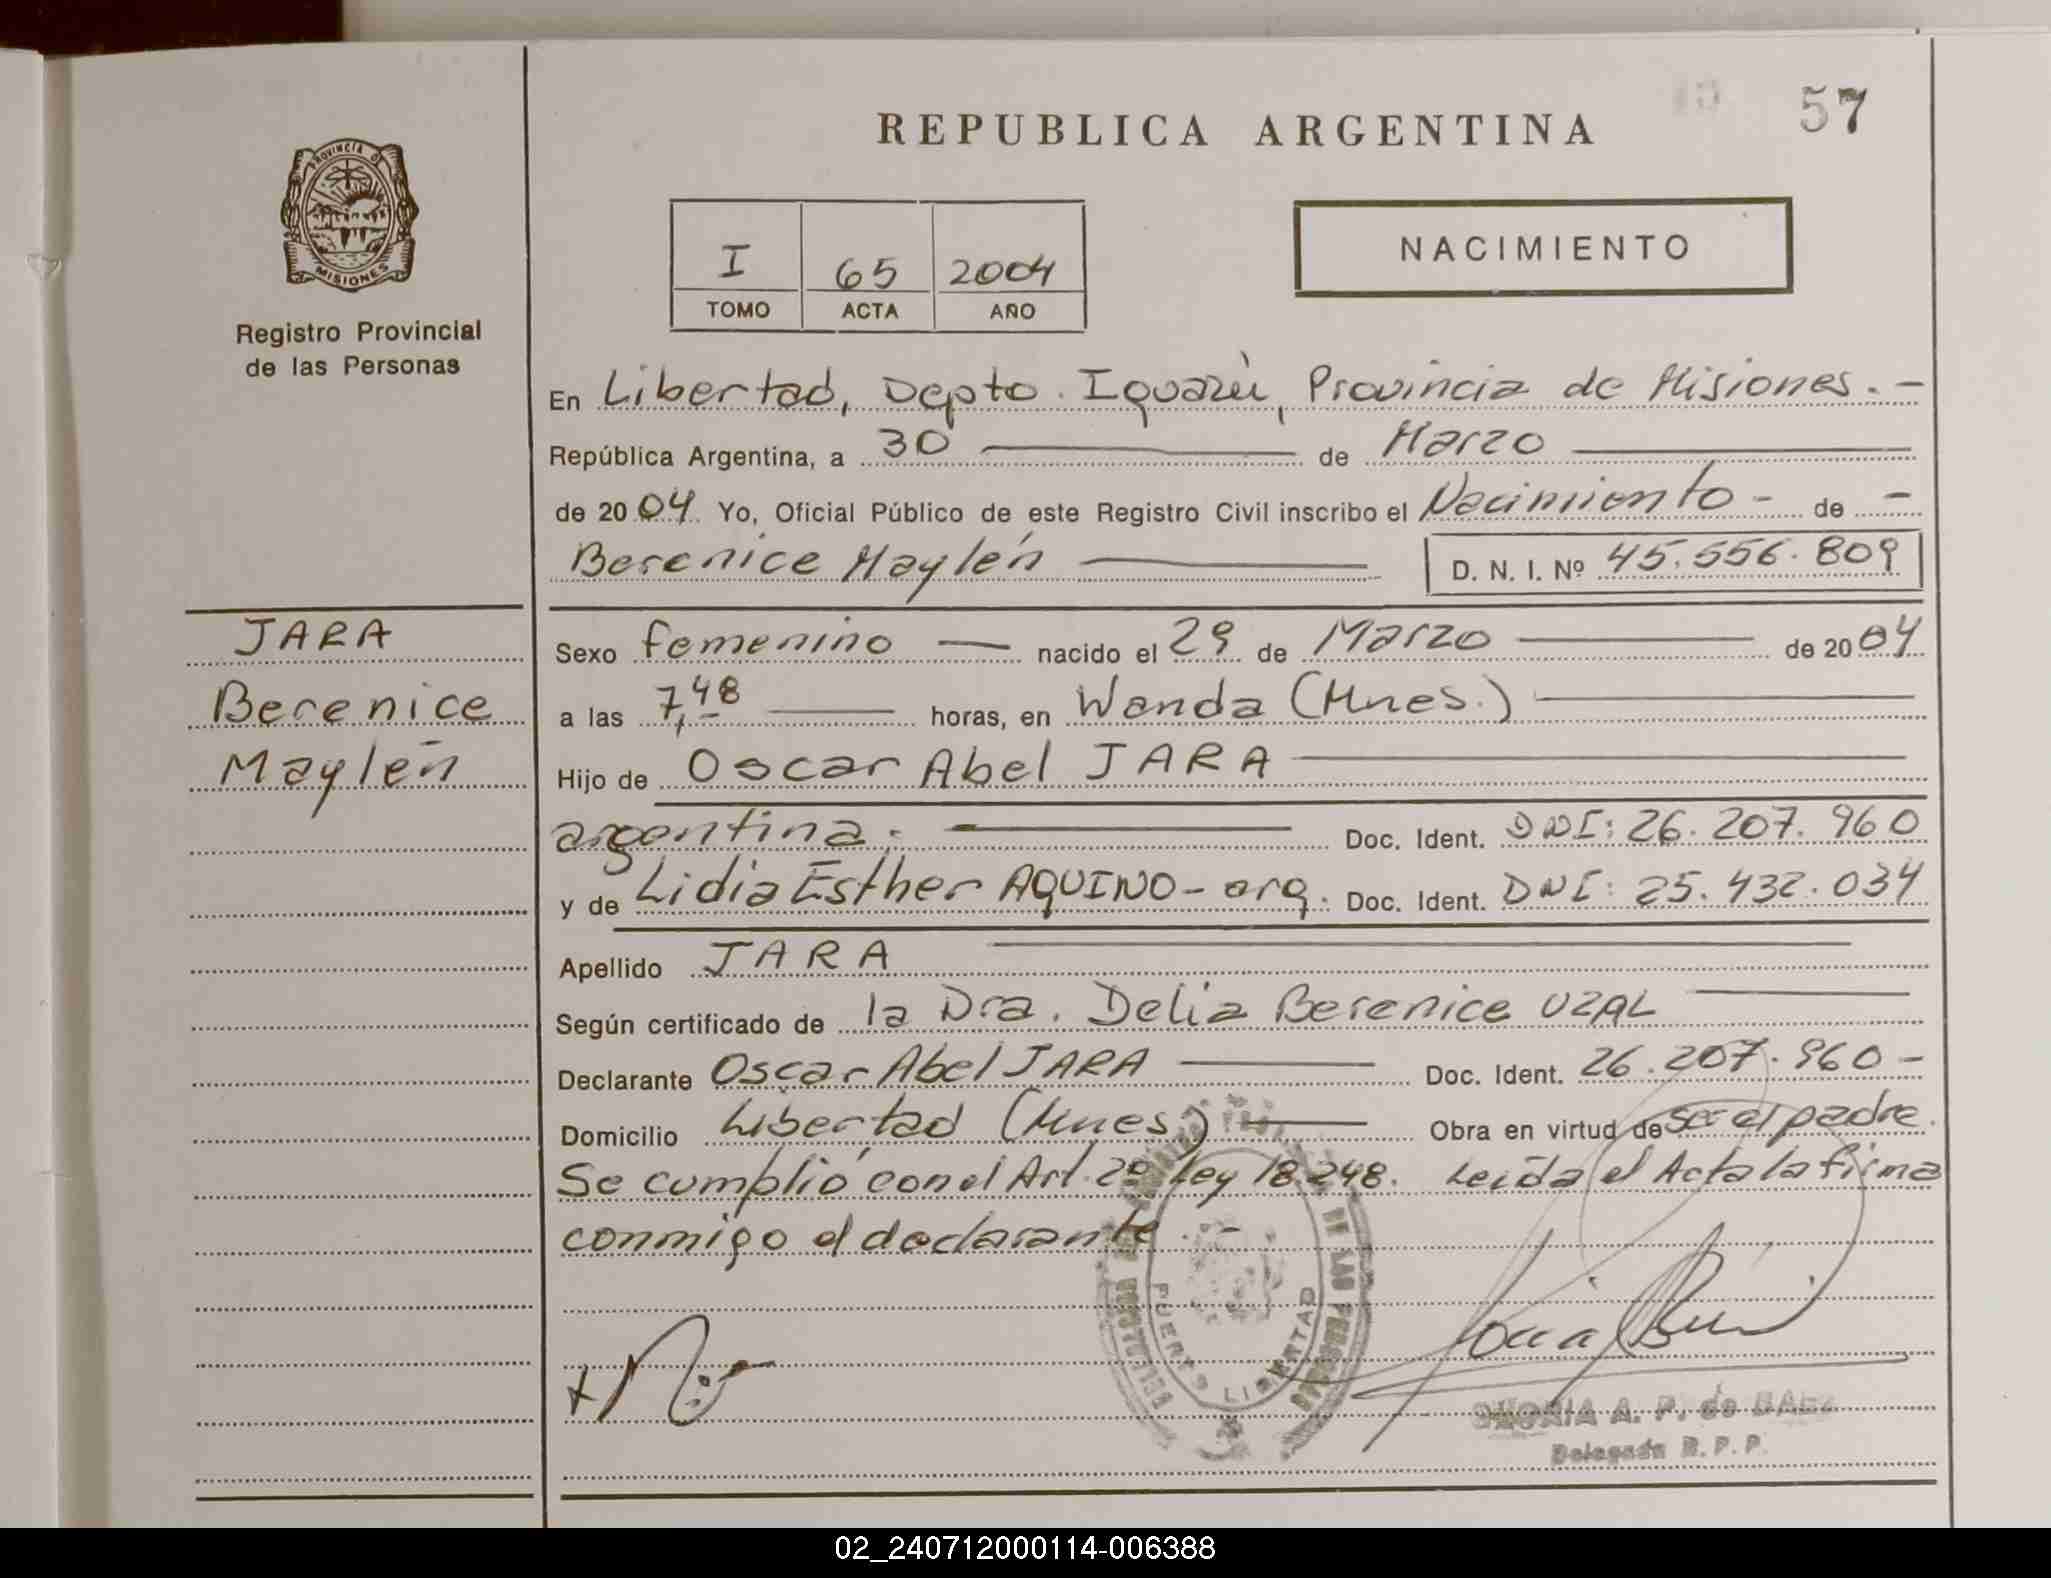 57
REPUBLICA ARGENTINA
PROVINCIA D
MISIONES
Registro Provincial
de las Personas
I 65 2004
TOMO ACTA AÑO
NACIMIENTO
En Libertad, Depto. Iguazú, Provincia de Misiones. -
República Argentina, a 30 de Marzo
de 2004 Yo, Oficial Público de este Registro Civil inscribo el Nacimiento - de -
Berenice Maylén D. N. I. Nº 45.556.809
JARA
Berenice
Maylén
Sexo femenino nacido el 29 de Marzo de 2004
a las 7,48 horas, en Wanda (Mnes.)
Hijo de Oscar Abel JARA
argentina. Doc. Ident. DNI: 26.207.960
y de Lidia Esther AQUINO - arg. Doc. Ident. DNI: 25.432.034
Apellido JARA
Según certificado de la Dra. Delia Berenice UZAL
Declarante Oscar Abel JARA Doc. Ident. 26.207.960 -
Domicilio Libertad (Mnes) Obra en virtud de ser el padre.
Se cumplió con el Art. 2º Ley 18.248. Leída el Acta la firma
conmigo el declarante. -
DE LAS PERSONAS
PUERTO LIBERTAD
A. P. de BAEZ
Delegada R. P. P.
02_240712000114-006388